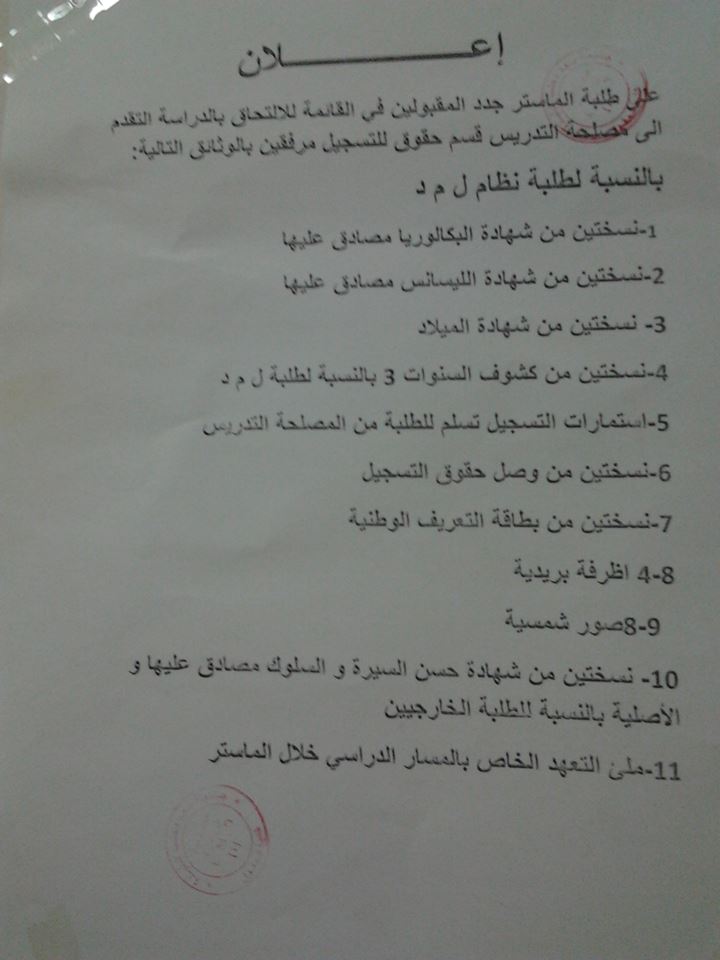 إعـــــــــــــــــلان
على طلبة الماستر جدد المقبولين في القائمة للالتحاق بالدراسة التقدم
الى مصلحة التدريس قسم حقوق للتسجيل مرفقين بالوثائق التالية:
بالنسبة لطلبة نظام ل م د
1-نسختين من شهادة البكالوريا مصادق عليها
2-نسختين من شهادة الليسانس مصادق عليها
3- نسختين من شهادة الميلاد
4-نسختين من كشوف السنوات 3 بالنسبة لطلبة ل م د
5-استمارات التسجيل تسلم للطلبة من المصلحة التدريس
6-نسختين من وصل حقوق التسجيل
7-نسختين من بطاقة التعريف الوطنية
8-4 اظرفة بريدية
9-8صور شمسية
10- نسختين من شهادة حسن السيرة و السلوك مصادق عليها و
الأصلية بالنسبة للطلبة الخارجيين
11-ملئ التعهد الخاص بالمسار الدراسي خلال الماستر